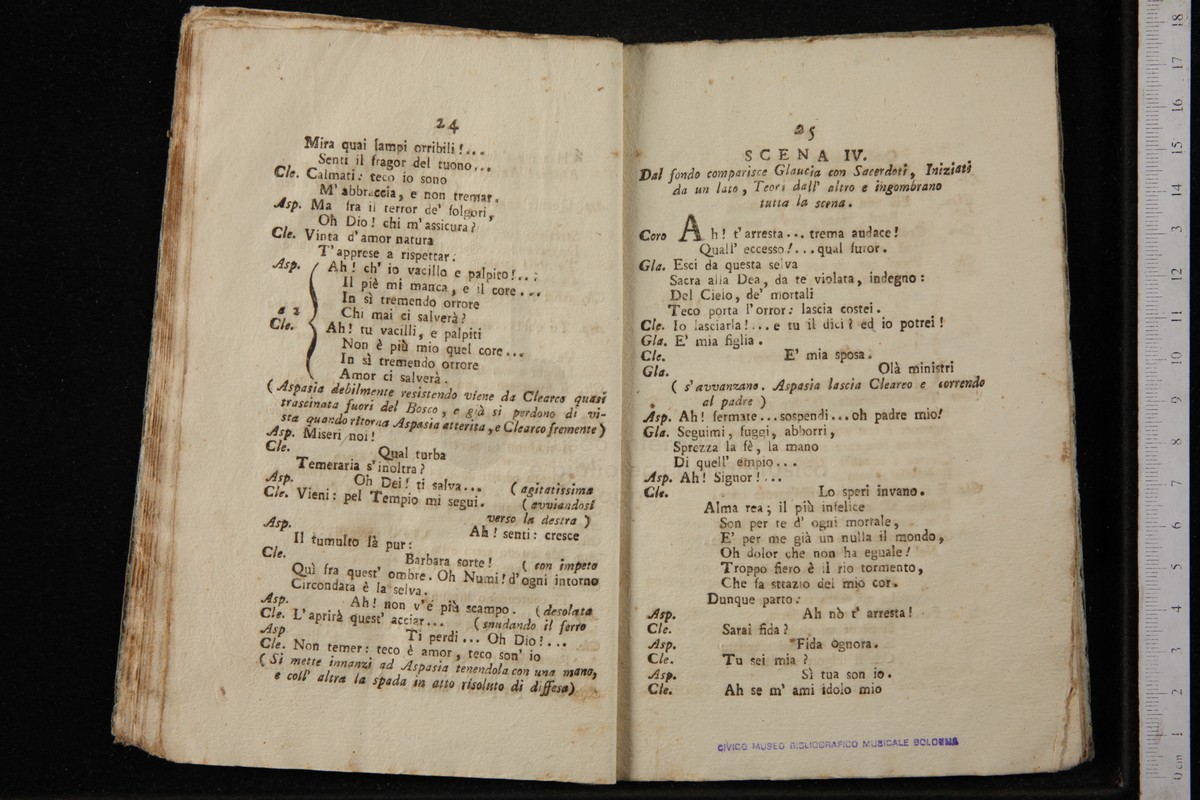 24
Mira quai lampi orribili!...
Senti il fragor del tuono...
Cle. Calmati: teco io sono
M' abbraccia, e non tremar.
Asp. Ma fra il terror de' folgori,
Oh Dio! chi m'assicura?
Cle. Vinta d'amor natura
T' apprese a rispettar.
Asp. Ah! ch' io vacillo e palpito!..:
Il piè mi manca, e il core...
In sì tremendo orrore
Chi mai ci salverà?
a 2
Cle. Ah! tu vacilli, e palpiti
Non è più mio quel core...
In sì tremendo orrore
Amor ci salverà.
(Aspasia debilmente resistendo viene da Clearco quasi
trascinata fuori del Bosco, e già si perdono di vi-
sta quando ritorna Aspasia atterita, e Clearco fremente)
Asp. Miseri noi!
Cle. Qual turba
Temeraria s'inoltra?
Asp. Oh Dei! ti salva... (agitatissima
Cle. Vieni: pel Tempio mi segui. (avviandosi
verso la destra)
Asp. Ah! senti: cresce
Il tumulto là pur:
Cle. Barbara sorte! (con impeto
Quì fra quest' ombre. Oh Numi! d'ogni intorno
Circondata è la selva.
Asp. Ah! non v'é più scampo. (desolata
Cle. L'aprirà quest' acciar... (snudando il ferro
Asp Ti perdi... Oh Dio!...
Cle. Non temer: teco è amor, teco son' io
(Si mette innanzi ad Aspasia tenendola con una mano,
e coll' altra la spada in atto risoluto di diffesa)
25
SCENA IV.
Dal fondo comparisce Glaucia con Sacerdoti, Iniziati
da un lato, Teori dall' altro e ingombrano
tutta la scena.
Coro Ah! t'arresta... trema audace!
Quall' eccesso!...qual furor.
Gla. Esci da questa selva
Sacra alla Dea, da te violata, indegno:
Del Cielo, de' mortali
Teco porta l'orror: lascia costei.
Cle. Io lasciarla!...e tu il dici? ed io potrei!
Gla. E' mia figlia.
Cle. E' mia sposa.
Gla. Olà ministri
(s' avvanzano. Aspasia lascia Clearco e correndo
al padre)
Asp. Ah! fermate...sospendi...oh padre mio!
Gla. Seguimi, fuggi, abborri,
Sprezza la fè, la mano
Di quell' empio...
Asp. Ah! Signor!...
Cle. Lo speri invano.
Alma rea; il più infelice
Son per te d' ogni mortale,
E' per me già un nulla il mondo,
Oh dolor che non ha eguale!
Troppo fiero è il rio tormento,
Che fa strazio del mio cor.
Dunque parto:
Asp. Ah nò t' arresta!
Cle. Sarai fida?
Asp. Fida ognora.
Cle. Tu sei mia?
Asp. Sì tua son io.
Cle. Ah se m' ami idolo mio
CIVICO MUSEO BIBLIOGRAFICO MUSICALE BOLOGNA
0 cm 1 2 3 4 5 6 7 8 9 10 11 12 13 14 15 16 17 18